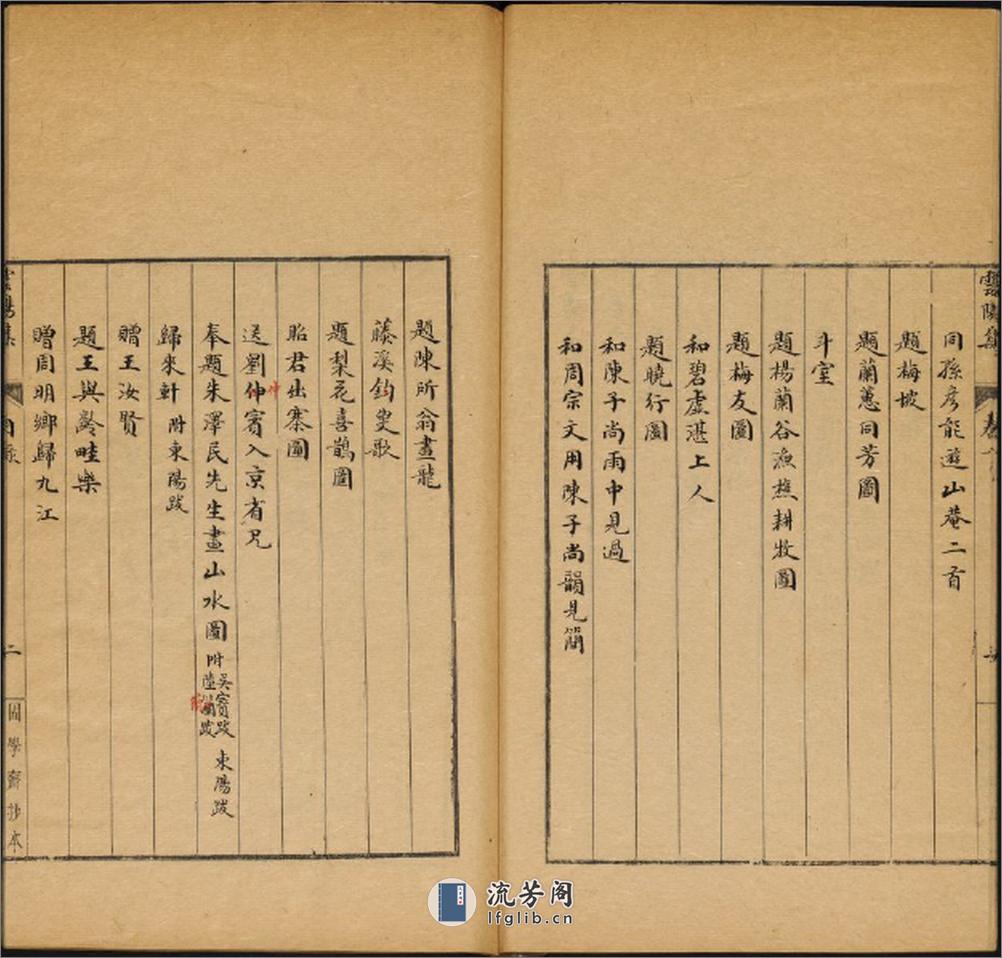 雲陽集
同孫彥能遊山菴二首
題梅坡
題蘭蕙同芳圖
斗室
題楊蘭谷漁樵耕牧圖
題梅友圖
和碧虛湛上人
題曉行圖
和陳子尚雨中見過
和周宗文用陳子尚韻見簡
題陳所翁畫龍
藤溪釣叟歌
題梨花喜鵲圖
昭君出塞圖
送劉仲賓入京省兄
奉題朱澤民先生畫山水圖 附 吳寶跋 陸跋 東陽跋
歸來軒 附東陽跋
贈王汝賢
題王與齡畦樂
贈周明鄉歸九江
雲陽集 目錄 二 固學齋抄本
流芳阁
lfglib.cn